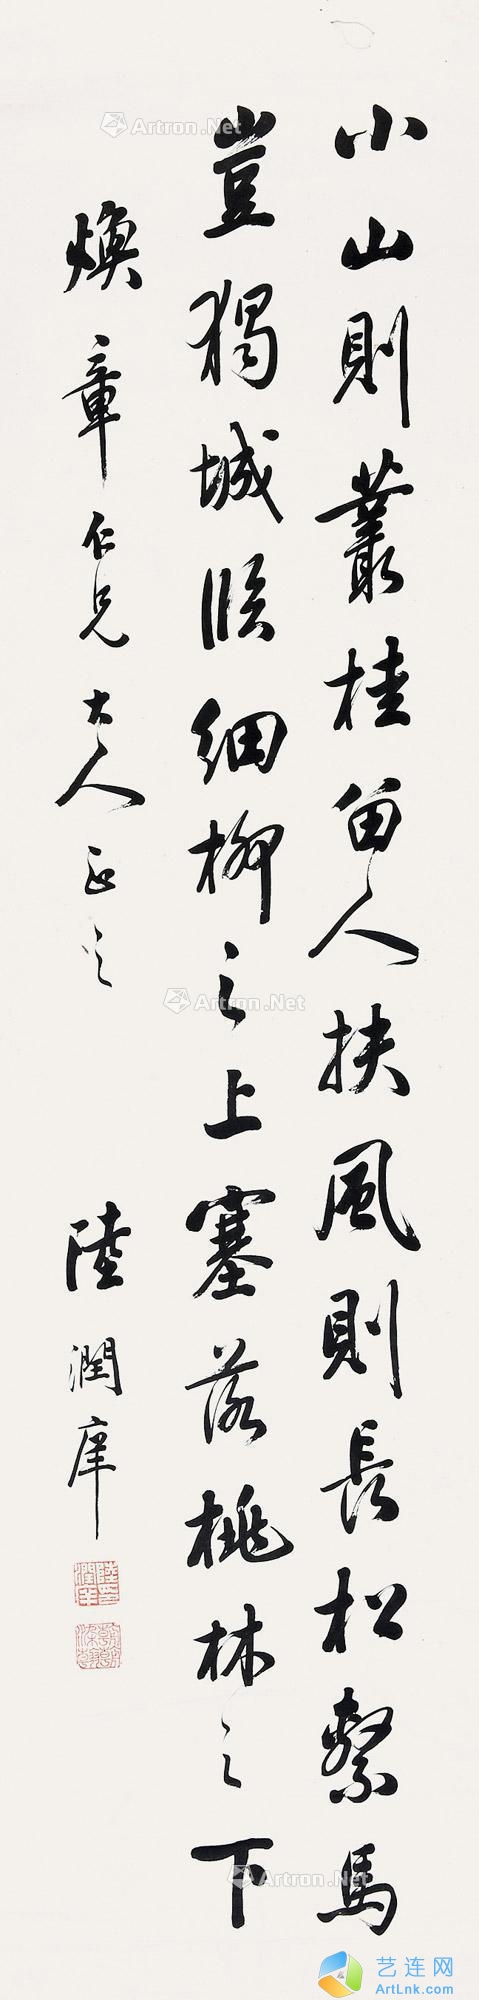 小山則叢桂留人扶風則長松繫馬
豈獨城臨細柳之上塞落桃林之下
煥章仁兄大人正之
陸潤庠
Artron.Net
Artron.Net
Artron.Net
艺连网
ArtLnk.com